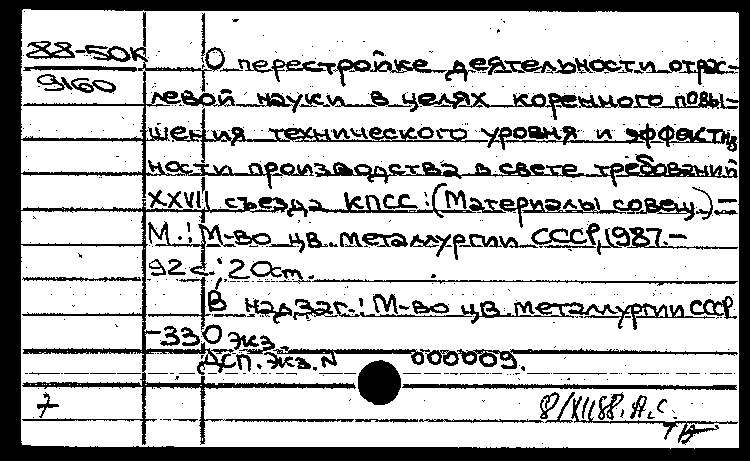 88-50К
9160
О перестройке деятельности отрас-
левой науки в целях коренного повы-
шения технического уровня и эффектив
ности производства в свете требований
XXVII съезда КПСС : (Материалы совещ.).—
М.: М-во цв. металлургии СССР, 1987.—
92 с.; 20 см.
В надзаг.: М-во цв. металлургии СССР.
-330 экз.
ДСП. Экз. N 000009.
7
8/XII 88. А.С.